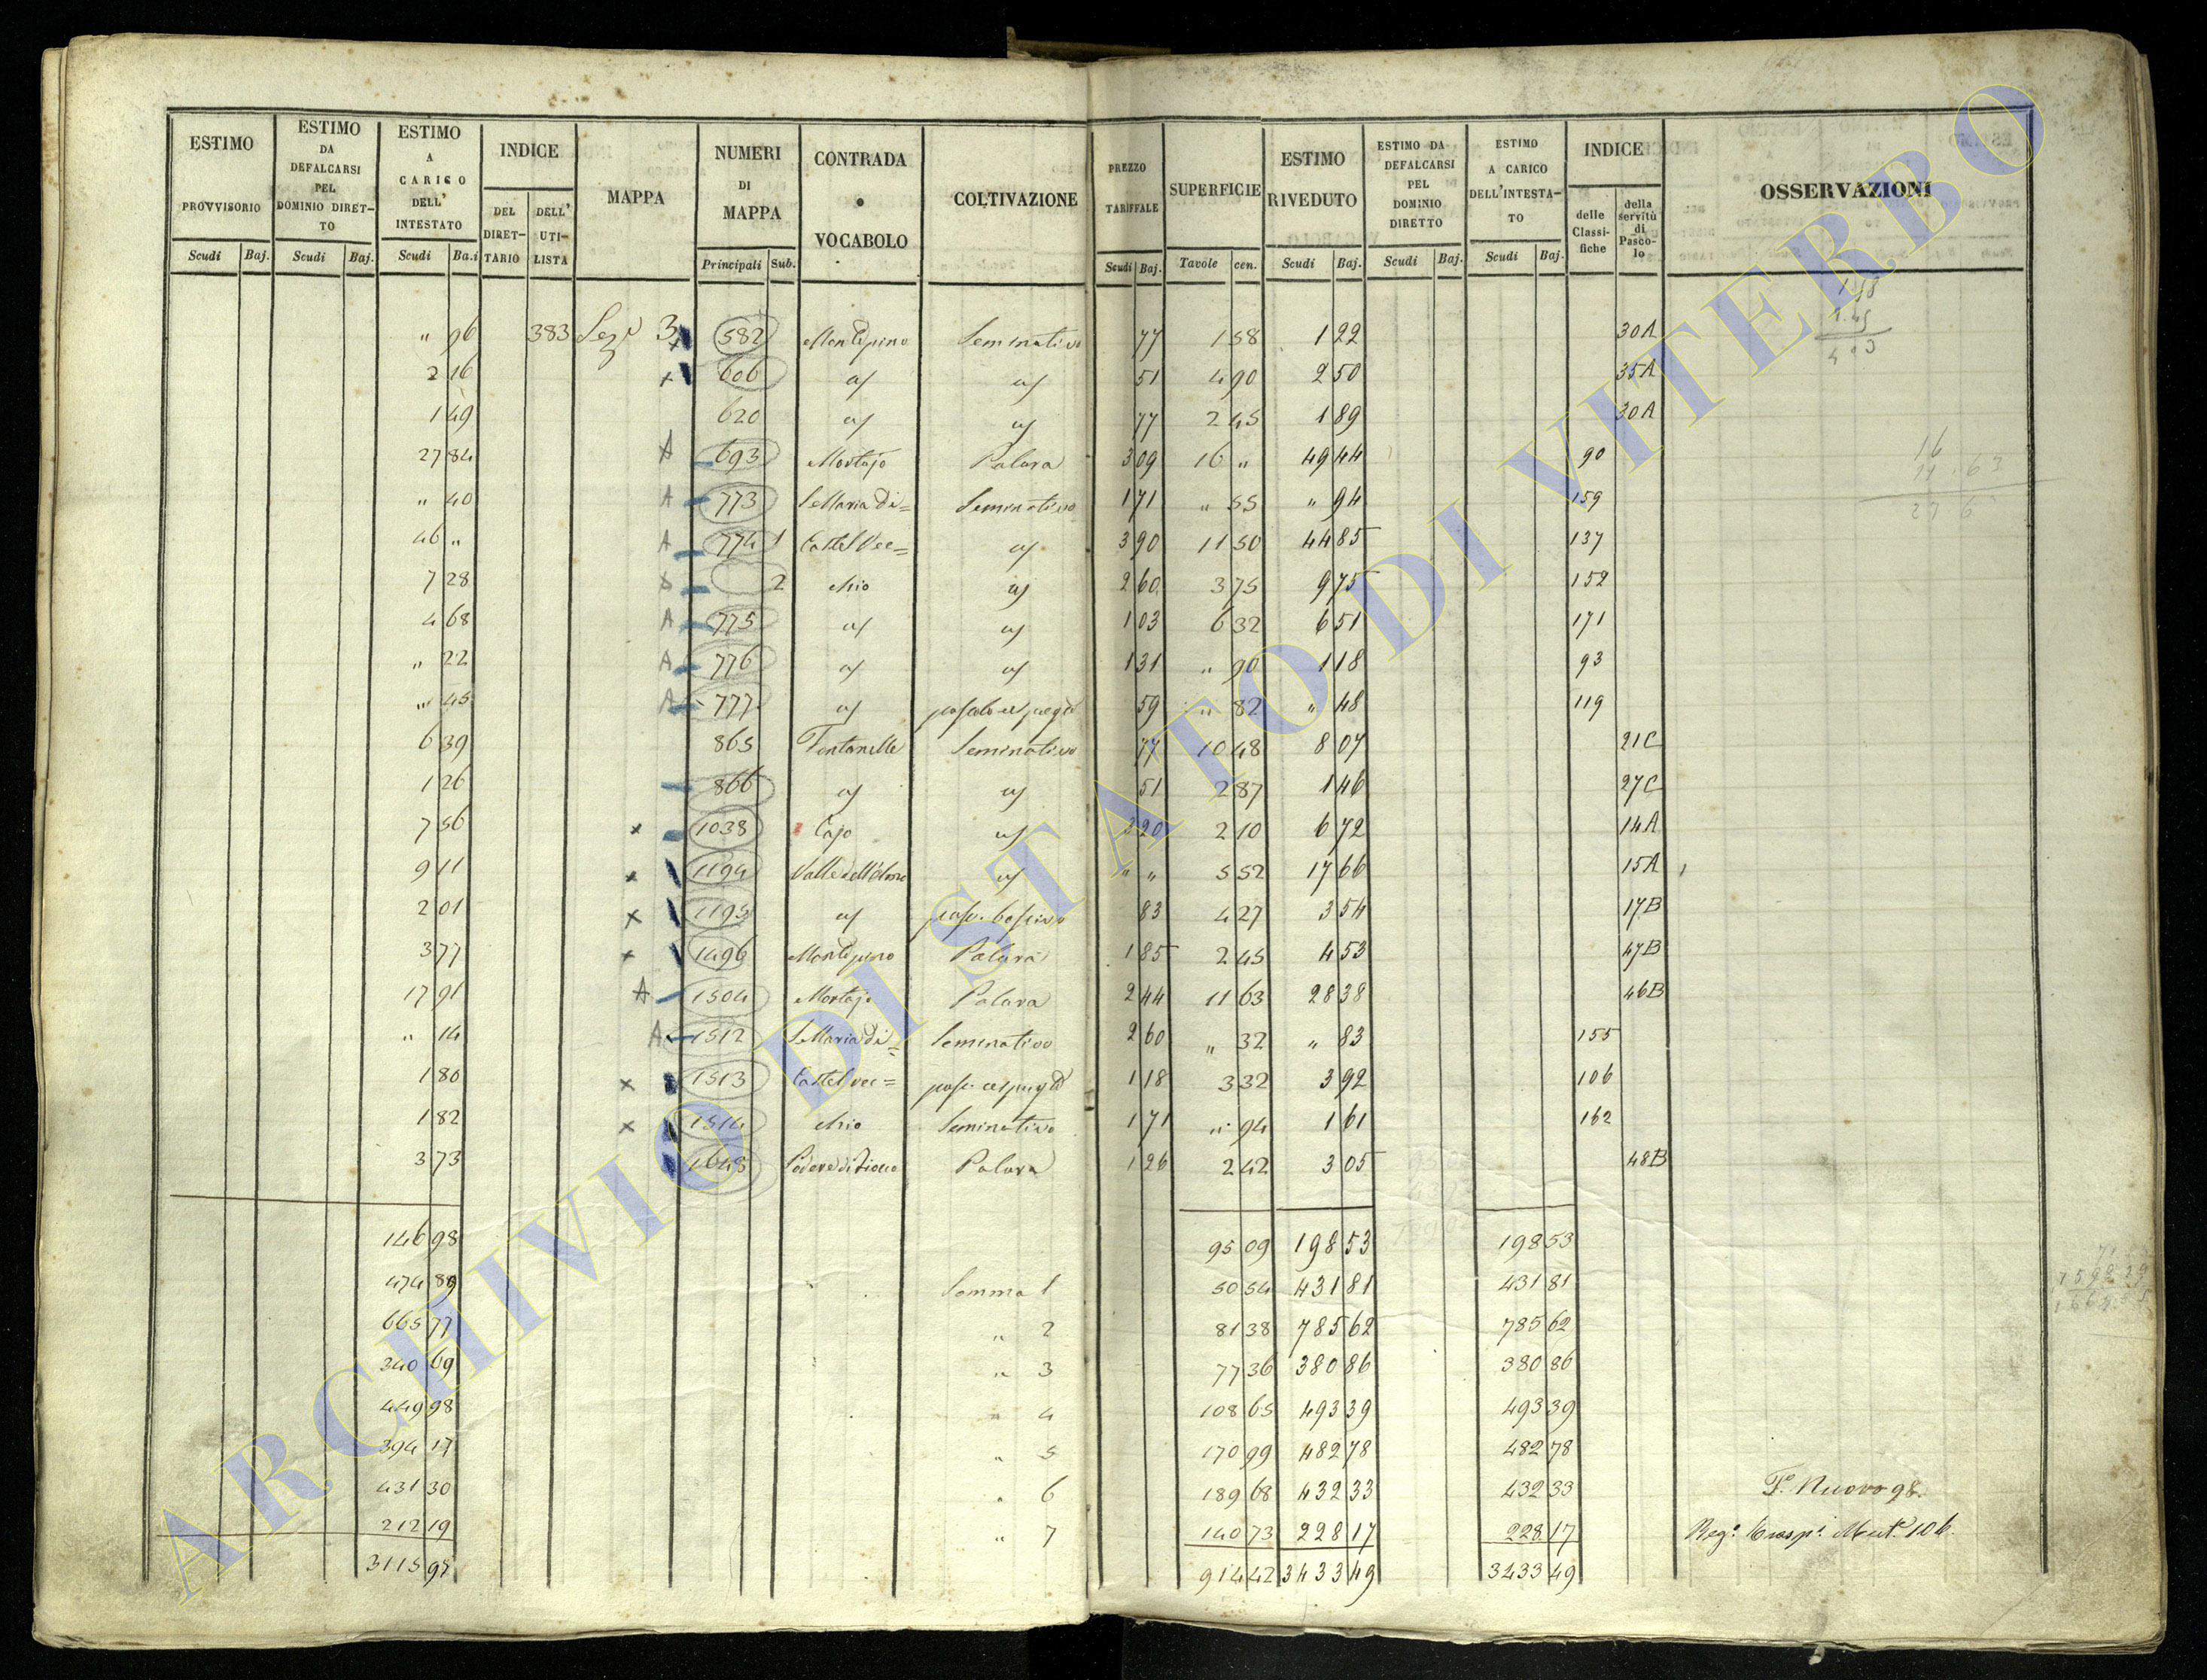 ESTIMO PROVVISORIO Scudi Baj. | ESTIMO DA DEFALCARSI PEL DOMINIO DIRET-TO Scudi Baj. | ESTIMO A CARICO DELL' INTESTATO Scudi Ba.i | INDICE DEL DIRET-TARIO DELL' UTI-LISTA | MAPPA | NUMERI DI MAPPA Principali Sub. | CONTRADA o VOCABOLO | COLTIVAZIONE | PREZZO TARIFFALE Scudi Baj. | SUPERFICIE Tavole cen. | ESTIMO RIVEDUTO Scudi Baj. | ESTIMO DA DEFALCARSI PEL DOMINIO DIRETTO Scudi Baj. | ESTIMO A CARICO DELL'INTESTA-TO Scudi Baj. | INDICE delle Classi-fiche della servitù di Pasco-lo | OSSERVAZIONI
" 96 383 Sez.e 3 x 582 Montepino Seminativo 77 1 58 1 22 30A
2 16 x 606 a/ a/ 51 4 90 2 50 35A
1 49 620 a/ a/ 77 2 45 1 89 30A
27 84 A 693 Mortajo Palara 3 09 16 " 49 44 90
" 40 A 773 S. Maria di= Seminativo 1 71 " 55 " 94 159
46 " A 774 1 Castel Vec= a/ 3 90 11 50 44 85 137
7 28 2 chio a/ 2 60 3 75 9 75 152
4 68 A 775 a/ a/ 1 03 6 32 6 51 171
" 22 A 776 a/ a/ 1 31 " 90 1 18 93
" 45 A 777 a/ 59 " 82 " 48 119
6 39 865 Fontanelle Seminativo 77 10 48 8 07 21C
1 26 866 a/ a/ 51 2 87 1 46 27C
7 56 x 1038 Cajo a/ 3 20 2 10 6 72 14A
9 11 x 1194 Valle dell'Olmo a/ " " 5 52 17 66 15A
2 01 x 1195 a/ 83 4 27 3 54 17B
3 77 x 1496 Montepino Palara 1 85 2 45 4 53 47B
17 91 A 1504 Mortajo Palara 2 44 11 63 28 38 46B
" 14 A 1512 S. Maria di= Seminativo 2 60 " 32 " 83 155
1 80 x 1513 Castel vec= 1 18 3 32 3 92 106
1 82 x 1514 chio Seminativo 1 71 " 94 1 61 162
3 73 1648 Palara 1 26 2 42 3 05 48B
146 98 95 09 198 53 198 53
474 89 Somma 1 50 54 431 81 431 81
665 77 " 2 81 38 785 62 785 62
340 69 " 3 77 36 380 86 380 86
449 98 " 4 108 65 493 39 493 39
394 17 " 5 170 99 482 78 482 78
431 30 " 6 189 68 432 33 432 33 F.o Nuovo 98.
212 19 " 7 140 73 228 17 228 17 Reg.o Mut.e 106.
3115 97 914 42 3433 49 3433 49
ARCHIVIO DI STATO DI VITERBO